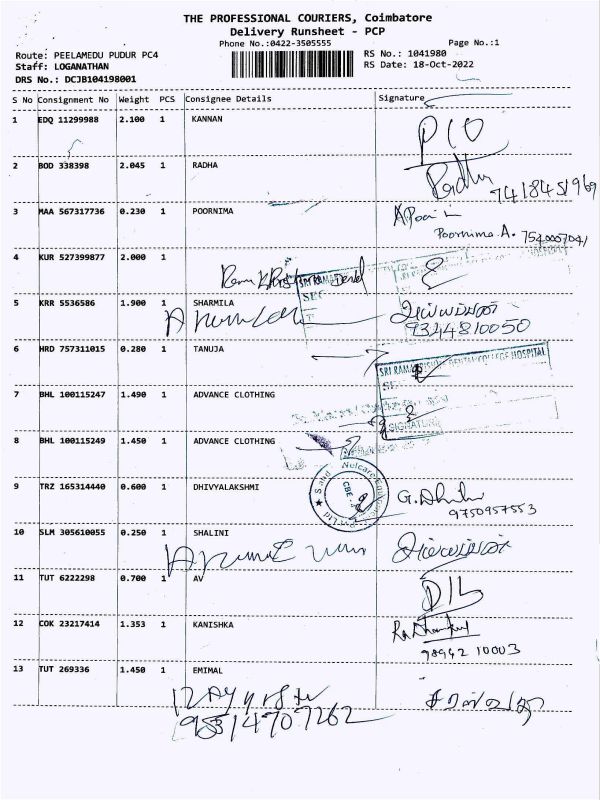 THE PROFESSIONAL COURIERS, Coimbatore
Delivery Runsheet - PCP
Phone No.:0422-3505555
Page No.:1
Route: PEELAMEDU PUDUR PC4
RS No.: 1041980
Staff: LOGANATHAN
RS Date: 18-Oct-2022
DRS No.: DCJB104198001
S No Consignment No Weight PCS Consignee Details Signature
1 EDQ 11299988 2.100 1 KANNAN
2 BOD 338398 2.045 1 RADHA
Radhu
7418451969
3 MAA 567317736 0.230 1 POORNIMA
Poornima.A. 7540007041
4 KUR 527399877 2.000 1
5 KRR 5536586 1.900 1 SHARMILA
9344810050
6 HRD 757311015 0.280 1 TANUJA
SRI RAMAKRISHNA DENTAL COLLEGE HOSPITAL
SIGNATURE
7 BHL 100115247 1.490 1 ADVANCE CLOTHING
8 BHL 100115249 1.450 1 ADVANCE CLOTHING
9 TRZ 165314440 0.600 1 DHIVYALAKSHMI
CBE
9750957553
10 SLM 305610055 0.250 1 SHALINI
11 TUT 6222298 0.700 1 AV
D/L
12 COK 23217414 1.353 1 KANISHKA
98942 10003
13 TUT 269336 1.450 1 EMIMAL